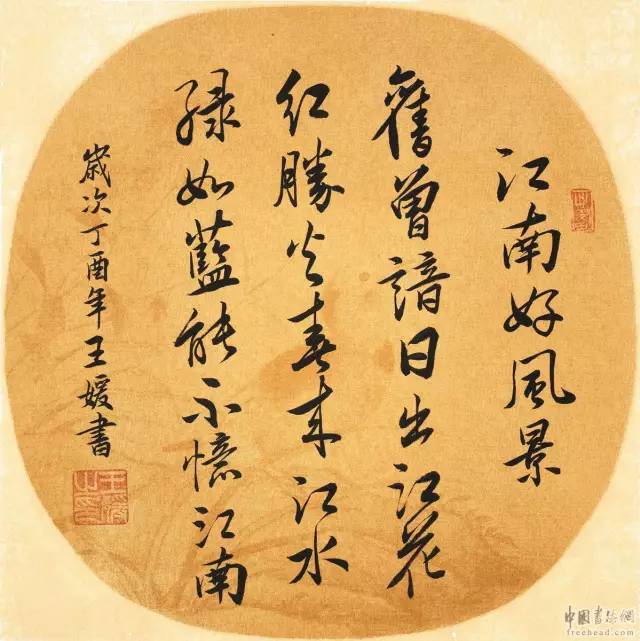 江南好風景
舊曾諳日出江花
紅勝火春來江水
綠如藍能不憶江南
歲次丁酉年王媛書
中國書法網
freehead.com